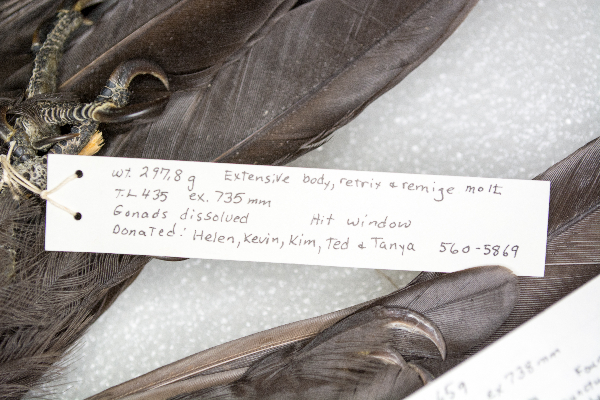 wt. 297.8 g Extensive body, retrix & remige molt
T.L 435 ex. 735 mm
Gonads dissolved Hit window
Donated: Helen, Kevin, Kim, Ted & Tanya 560-5869
ex 738 mm